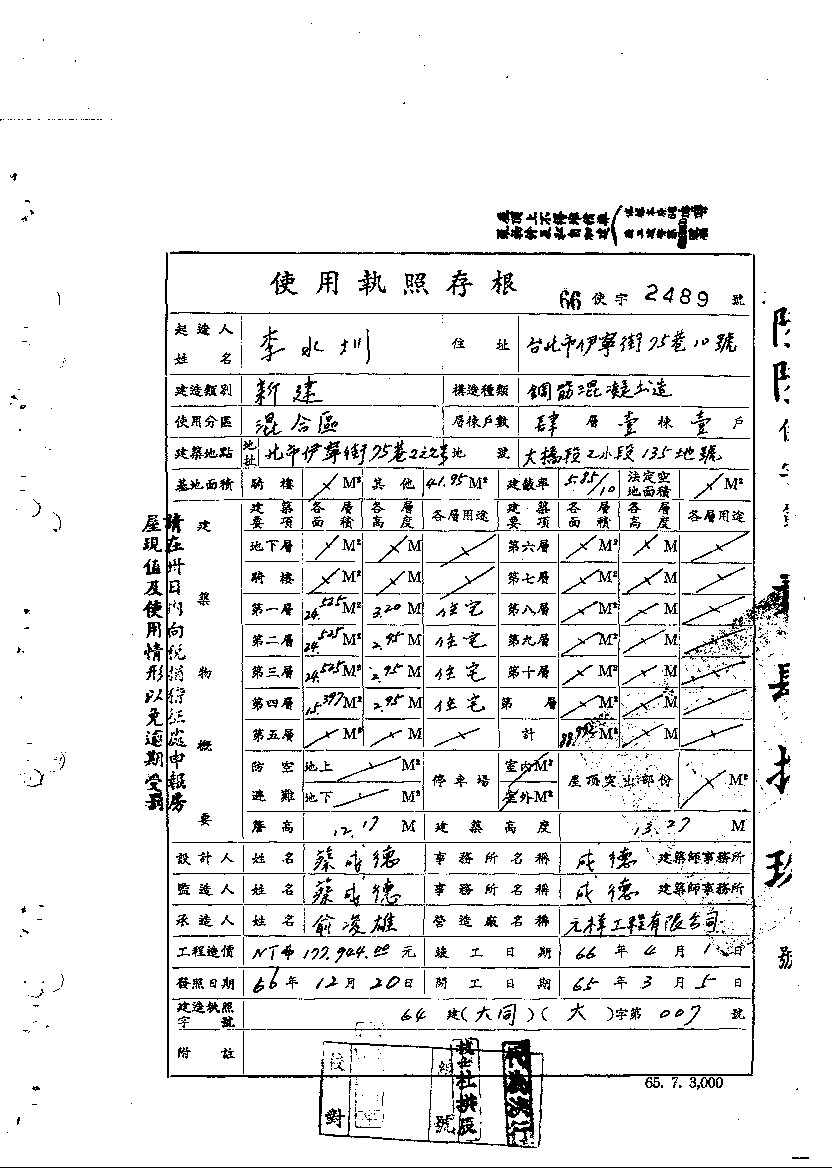 使用執照存根 66使字2489號
起造人姓名 李水圳 住址 台北市伊寧街75巷10號
建造類別 新建 構造種類 鋼筋混凝土造
使用分區 混合區 層棟戶數 肆層壹棟壹戶
建築地點 地址 北市伊寧街75巷 地號 大橋段2小段135地號
基地面積 騎樓 M² 其他 41.95M² 建蔽率 法定空地面積 M²
建築物概要
建築要項 各層面積 各層高度 各層用途 建築要項 各層面積 各層高度 各層用途
地下層 M² M 第六層 M² M
騎樓 M² M 第七層 M² M
第一層 24.525M² 3.20M 住宅 第八層 M² M
第二層 24.525M² 2.95M 住宅 第九層 M² M
第三層 24.525M² 2.95M 住宅 第十層 M² M
第四層 15.397M² 2.95M 住宅 第 層 M² M
第五層 M² M 計 M² M
防空避難 地上 M² 停車場 室內M² 屋頂突出部份 M²
地下 M² 室外M²
簷高 12.17M 建築高度 13.27M
設計人 姓名 蔡成德 事務所名稱 成德 建築師事務所
監造人 姓名 蔡成德 事務所名稱 成德 建築師事務所
承造人 姓名 俞浚雄 營造廠名稱 元祥工程有限公司
工程造價 NT$ 177,944.00元 竣工日期 66年4月1日
發照日期 66年12月20日 開工日期 65年3月5日
建造執照字號 64建(大同)(大)字第007號
附註
65. 7. 3,000
請在卅日內向稅捐稽征處申報房
屋現值及使用情形以免逾期受罰
校對
號